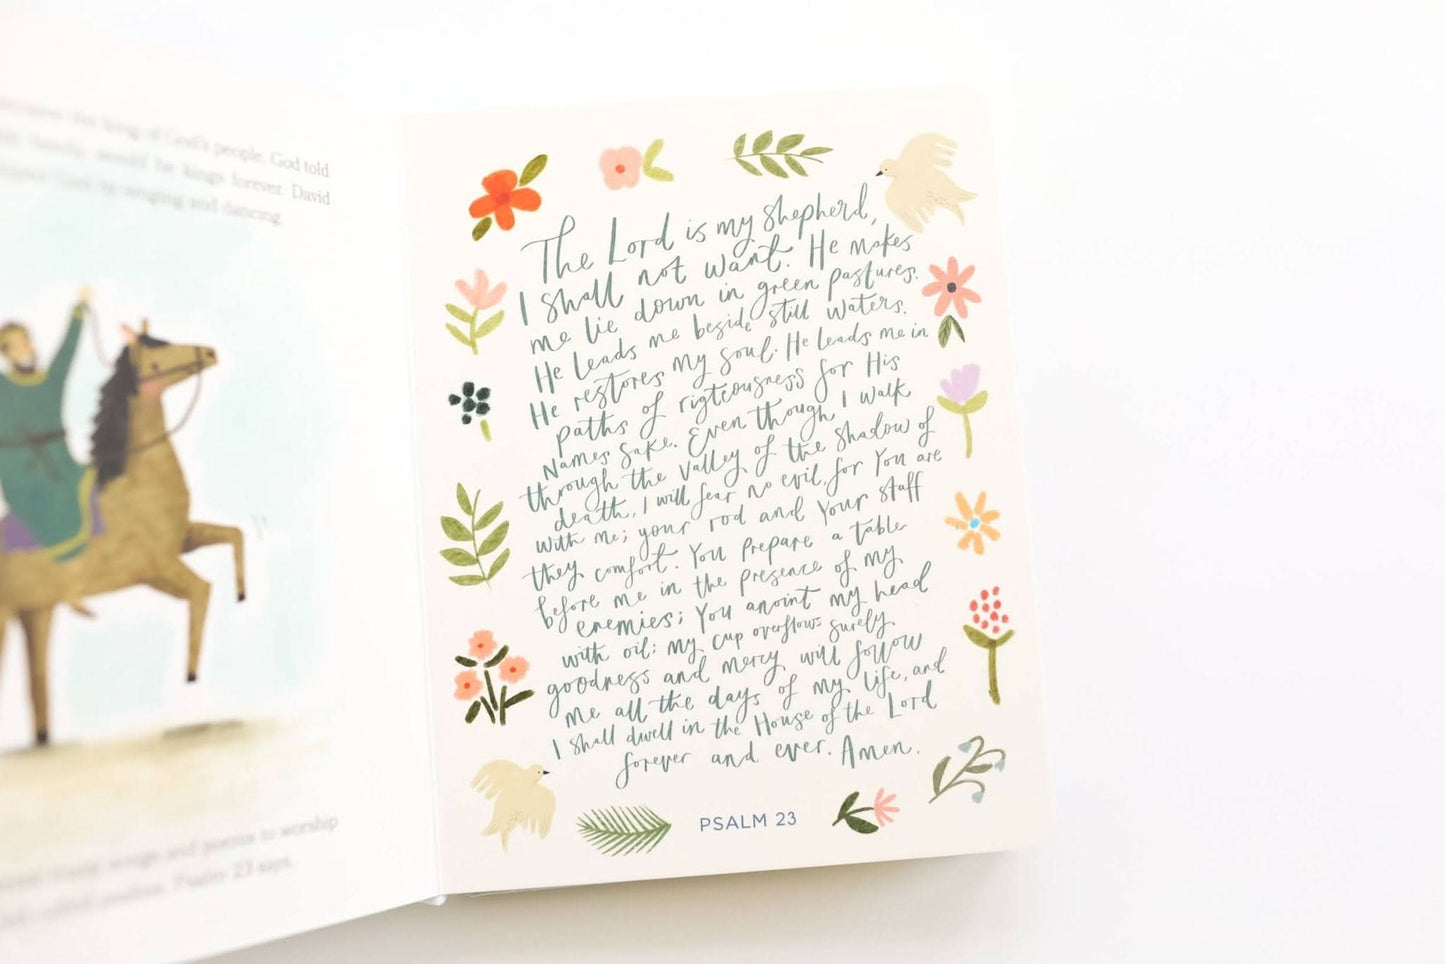 the king of God's people. God told
family would be kings forever. David
by singing and dancing.
songs and poems to worship
called psalms. Psalm 23 says,
The Lord is my shepherd,
I shall not want. He makes
me lie down in green pastures.
He leads me beside still waters.
He restores my soul. He leads me in
paths of rigteousness for His
Names Sake. Even though I walk
through the valley of the shadow of
death, I will fear no evil, for You are
with me; your rod and Your staff
they comfort. You prepare a table
before me in the presence of my
enemies; You anoint my head
with oil: my cup overflows surely
goodness and mercy will follow
me all the days of my life, and
I shall dwell in the House of the Lord
forever and ever. Amen.
PSALM 23